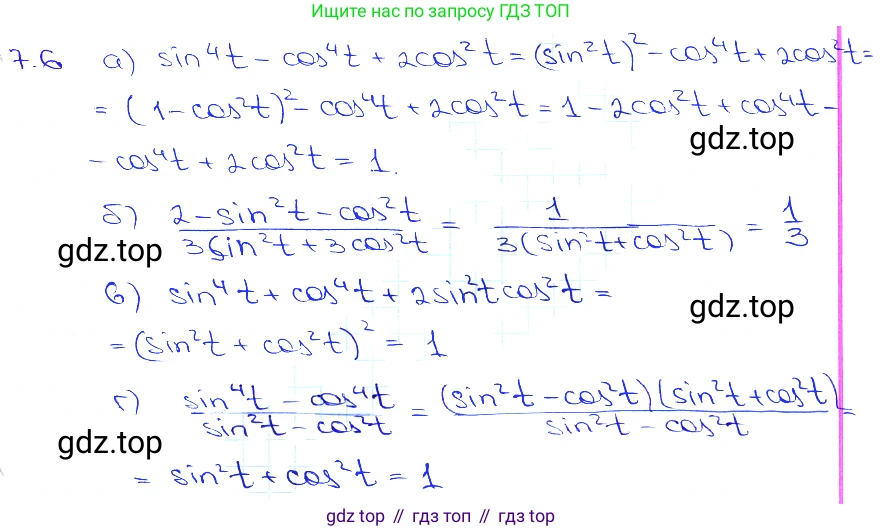 Ищите нас по запросу ГДЗ ТОП
7.6 а) sin⁴t - cos⁴t + 2cos²t = (sin²t)² - cos⁴t + 2cos²t =
= (1 - cos²t)² - cos⁴t + 2cos²t = 1 - 2cos²t + cos⁴t -
gdz.top
- cos⁴t + 2cos²t = 1.
б) (2 - sin²t - cos²t)/(3sin²t + 3cos²t) = 1/(3(sin²t + cos²t)) = 1/3
gdz.top
в) sin⁴t + cos⁴t + 2sin²t cos²t =
gdz.top
= (sin²t + cos²t)² = 1
г) (sin⁴t - cos⁴t)/(sin²t - cos²t) = ((sin²t - cos²t)(sin²t + cos²t))/(sin²t - cos²t) =
gdz.top
= sin²t + cos²t = 1
gdz top // гдз топ // гдз top